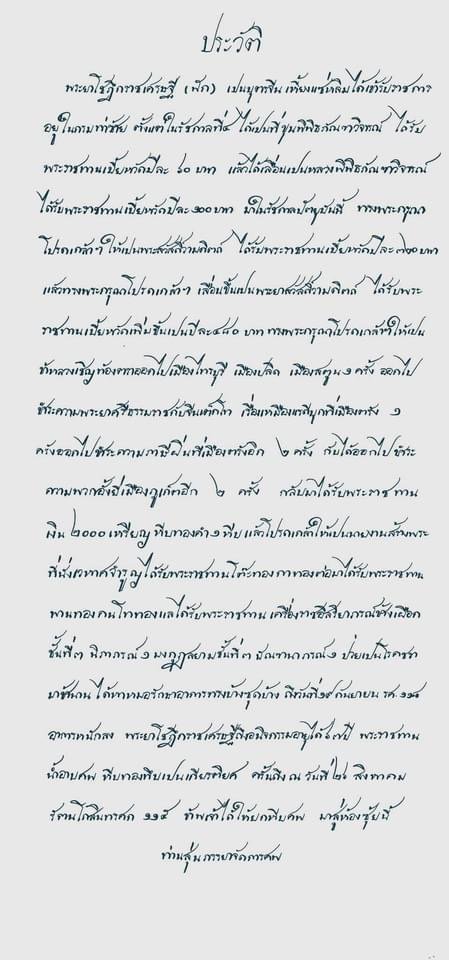 ประวัติ
พระยาโชฎึกราชเศรษฐี (ฟัก) เปนบุตรจีน เพี้ยนแซ่หลิมได้เข้ารับราชการ
อยู่ในกรมท่าซ้าย ตั้งแต่ในรัชกาลที่๔ ได้เปนที่ขุนพิพิธภัณฑวิจารณ์ ได้รับ
พระราชทานเบี้ยหวัดปีละ ๖๐ บาท แล้วได้เลื่อนเปนหลวงพิพิธภัณฑวิจารณ์
ได้รับพระราชทานเบี้ยหวัดปีละ๑๐๐บาท มาในรัชกาลปัตยุบันนี้ ทรงพระกรุณา
โปรดเกล้าฯ ให้เปนพระสวัสดิ์วามดิตถ์ ได้รับพระราชทานเบี้ยหวัดปีละ๗๐บาท
แล้วทรงพระกรุณโปรดเกล้าฯ เลื่อนขึ้นเปนพระยาสวัสดิ์วามดิตถ์ ได้รับพระ
ราชทานเบี้ยหวัดเพิ่มขึ้นเปนปีละ๔๘๐ บาท ทรงพระกรุณโปรดเกล้าฯให้เปน
ข้าหลวงเชิญท้องตราออกไปเมืองไทรบุรี เมืองปลิด เมืองสตูน๑ ครั้ง ออกไป
ชำระความพระยาศรีธรรมราชกับจีนเต๊กโก เรื่องเหมืองแร่ดีบุกที่เมืองตรัง ๑
ครั้งออกไปชำระความภาษีฝิ่นที่เมืองตรังอีก ๒ ครั้ง กับได้ออกไปชำระ
ความพวกอั้งยี่เมืองภูเก็ตอีก ๒ ครั้ง กลับมาได้รับพระราชทาน
เงิน ๒๐๐๐ เหรียญ หีบทองคำ๑หีบ แล้วโปรดเกล้าให้เปนนายงานสร้างพระ
ที่นั่งเวหาศจำรูญได้รับพระราชทานโต๊ะทอง กาทองต่อมาได้รับพระราชทาน
พานทอง คนโททองแลได้รับพระราชทาน เครื่องราชอิสริยาภรณ์ช้างเผือก
ชั้นที่๓ นิภาภรณ์๑ มงกุฎสยามชั้นที่๓ มัณฑนาภรณ์๑ ป่วยเปนโรคชรา
มาช้านาน ได้หาหมอรักษาอาการทรงบ้างซุดบ้าง ถึงวันที่๑๙กันยายน รศ.๑๑๔
อาการหนักลง พระยาโชฎึกราชเศรษฐีถึงอนิจกรรมอายุได้๖๗ปี พระราชทาน
น้ำอาบศพ หีบทองทึบเปนเกียรติยศ ครั้นถึง ณ วันที่๒๖ สิงหาคม
รัตนโกสินทรศก ๑๑๕ ข้าพเจ้าได้ให้ยกหีบศพ มาสู่ห้องซุ้ยนี้
ท่านสุ่นภรรยาจัดการศพ